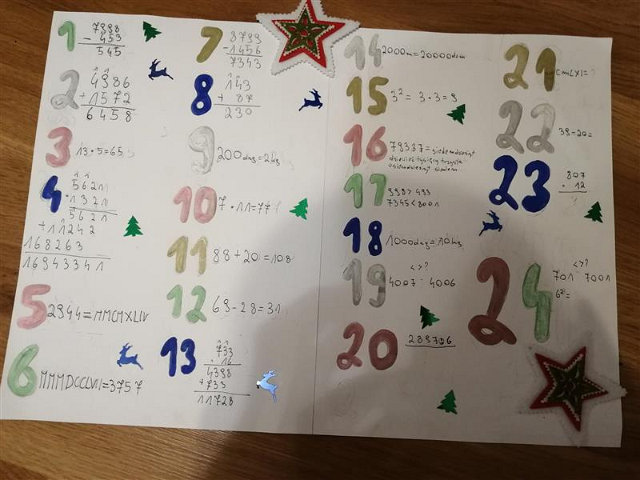 1
- 453
545
2
4986
+ 1572
6458
3
13 · 5 = 65
4
5621
5621
168263
16943341
5
2944 = MMCMXLIV
6
MMMDCCLVII = 3757
7
8799
- 1456
7343
8
143
+ 87
230
9
200dag = 2kg
10
7 · 11 = 77
11
88 + 20 = 108
12
69 - 28 = 31
13
733
· 16
4398
+ 733
11728
14
2000m = 20000dm
15
3² = 3 · 3 = 9
16
79387 =
17
7345 < 8001
18
1000dag = 10kg
19
<>?
4007 4006
20
289706
21
CMLXI = ?
22
39 - 20 =
23
807
· 12
?
24
<>?
701 7001
6² =